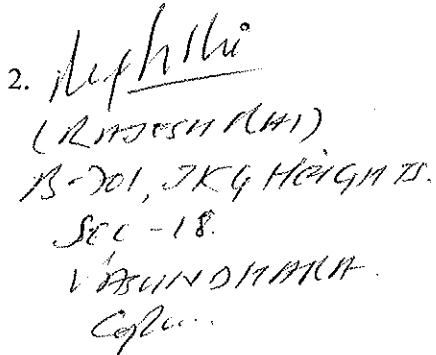 2.
(RAJESH RAI)
B-701, JKG HEIGHTS.
SEC-18.
VASUNDHARA.